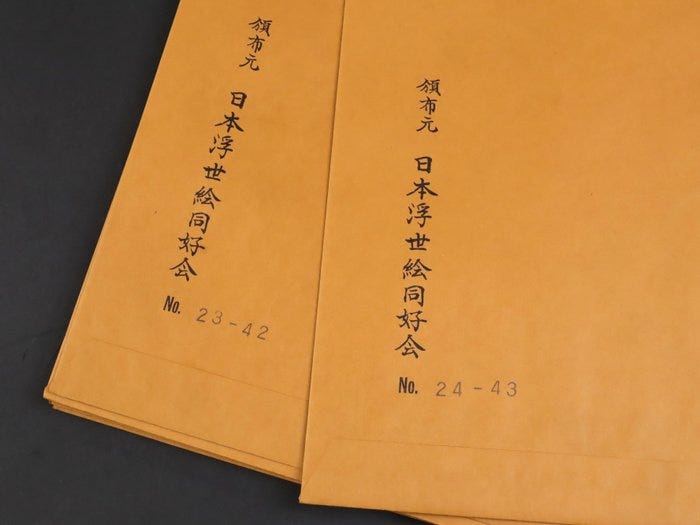 頒布元
日本浮世絵同好会
No. 23-42
頒布元
日本浮世絵同好会
No. 24-43